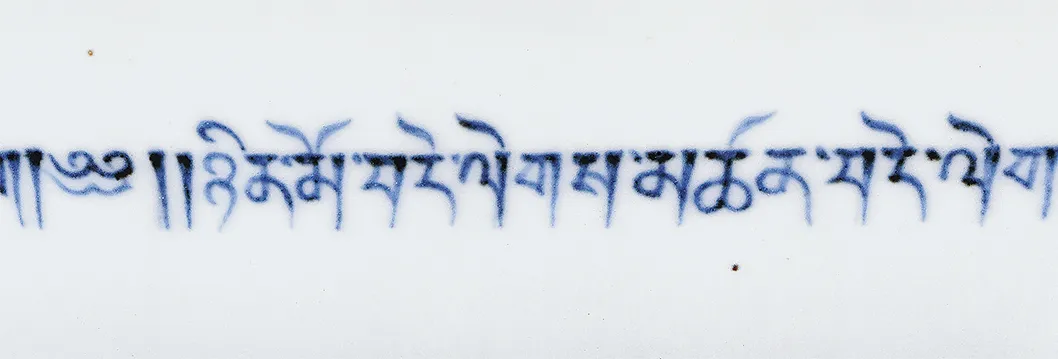 །།༄།།ཉིན་མོ་བདེ་ལེགས་མཚན་བདེ་ལེག